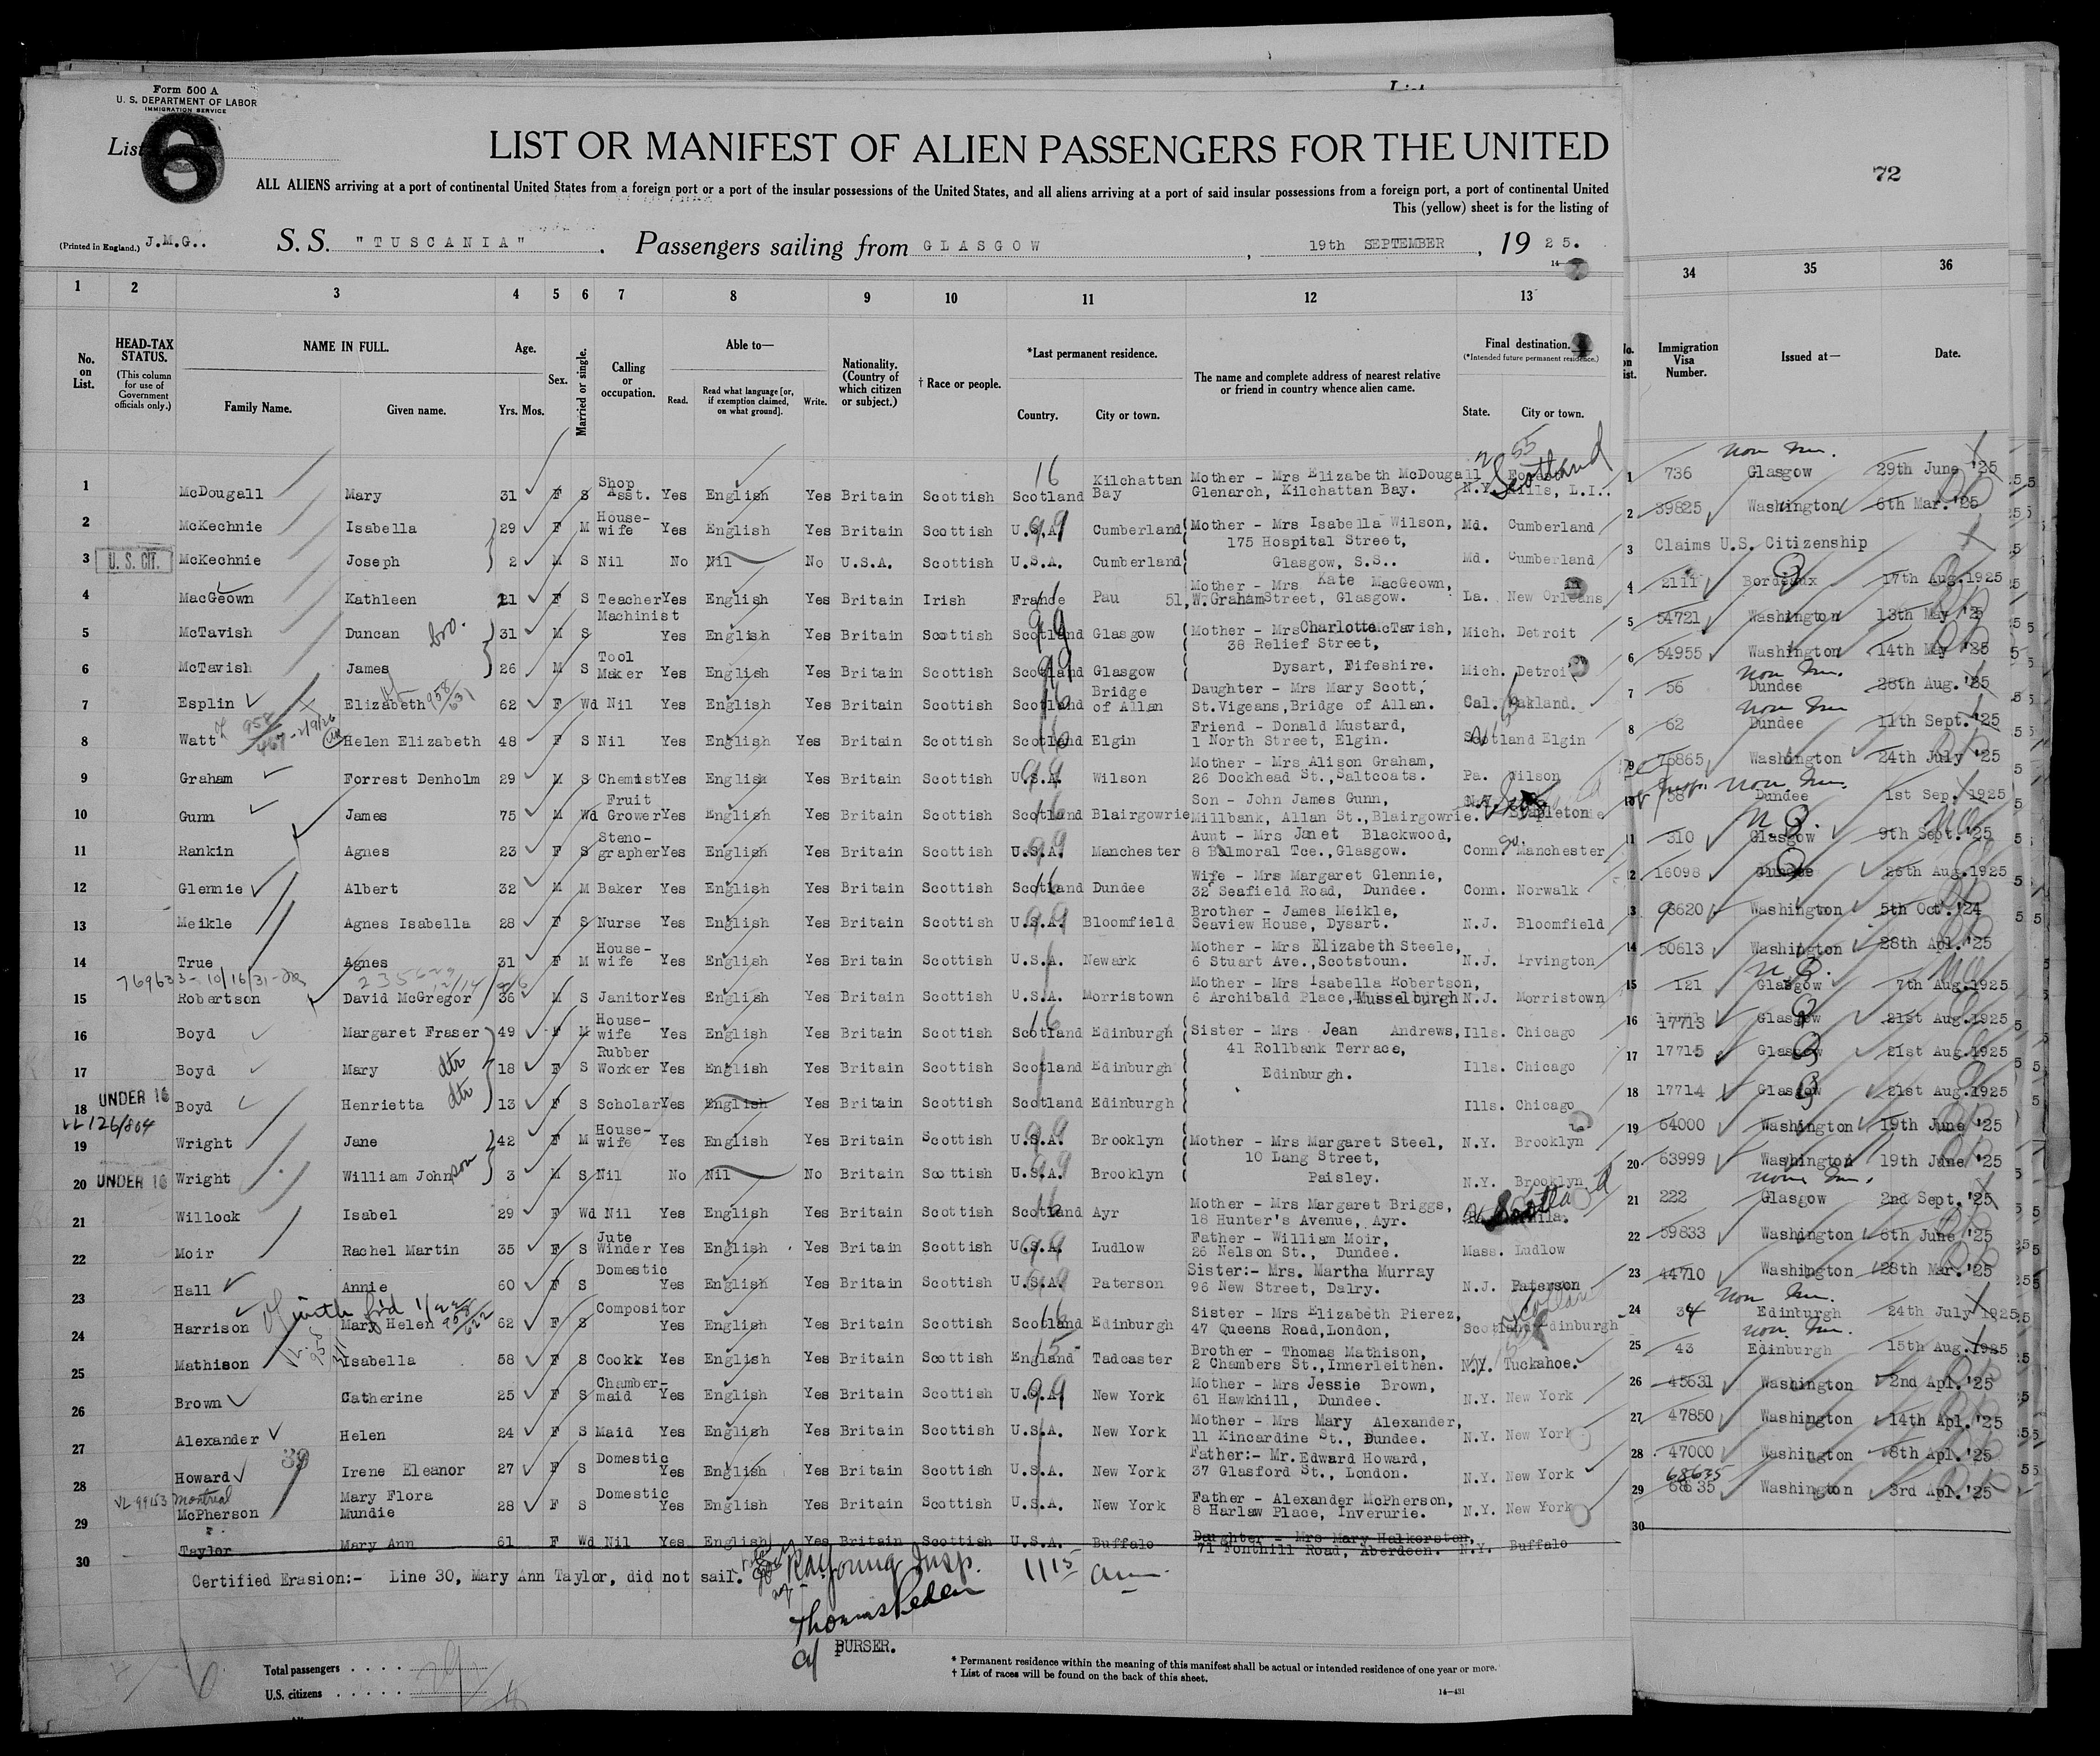 Form 500 A
U. S. DEPARTMENT OF LABOR
IMMIGRATION SERVICE
List 6
LIST OR MANIFEST OF ALIEN PASSENGERS FOR THE UNITED
72
ALL ALIENS arriving at a port of continental United States from a foreign port or a port of the insular possessions of the United States, and all aliens arriving at a port of said insular possessions from a foreign port, a port of continental United
This (yellow) sheet is for the listing of
(Printed in England.) J.M.G.. S. S. "TUSCANIA" . Passengers sailing from GLASGOW , 19th SEPTEMBER , 19 25.
1 2 3 4 5 6 7 8 9 10 11 12 13 34 35 36
No. on List. HEAD-TAX STATUS. (This column for use of Government officials only.) NAME IN FULL. Family Name. Given name. Age. Yrs. Mos. Sex. Married or single. Calling or occupation. Able to— Read. Read what language [or, if exemption claimed, on what ground]. Write. Nationality. (Country of which citizen or subject.) † Race or people. *Last permanent residence. Country. City or town. The name and complete address of nearest relative or friend in country whence alien came. Final destination. (*Intended future permanent residence.) State. City or town. Immigration Visa Number. Issued at— Date.
1 McDougall Mary 31 F S Shop Asst. Yes English Yes Britain Scottish Scotland Kilchattan Bay Mother - Mrs Elizabeth McDougall Glenarch, Kilchattan Bay. N.Y. Hills, L.I.. Scotland 1 736 Glasgow 29th June '25
2 McKechnie Isabella 29 F M House-wife Yes English Yes Britain Scottish U.S.A. Cumberland Mother - Mrs Isabella Wilson, 175 Hospital Street, Md. Cumberland 2 39825 Washington 6th Mar. '25
3 U. S. CIT. McKechnie Joseph 2 M S Nil No Nil No U.S.A. Scottish U.S.A. Cumberland Glasgow, S.S.. Md. Cumberland 3 Claims U.S. Citizenship
4 MacGeown Kathleen 21 F S Teacher Yes English Yes Britain Irish France Pau Mother - Mrs Kate MacGeown, 51, W. Graham Street, Glasgow. La. New Orleans 4 2111 Bordeaux 17th Aug. 1925
5 McTavish Duncan bro. 31 M S Machinist Yes English Yes Britain Scottish Scotland Glasgow Mother - Mrs Charlotte McTavish, 38 Relief Street, Mich. Detroit 5 54721 Washington 13th May '25
6 McTavish James 26 M S Tool Maker Yes English Yes Britain Scottish Scotland Glasgow Dysart, Fifeshire. Mich. Detroit 6 54955 Washington 14th May '25
7 Esplin Elizabeth 958/631 62 F Wd Nil Yes English Yes Britain Scottish Scotland Bridge of Allan Daughter - Mrs Mary Scott, St.Vigeans, Bridge of Allan. Cal. Oakland. 7 56 Dundee 28th Aug. '25
8 Watt Helen Elizabeth 48 F S Nil Yes English Yes Britain Scottish Scotland Elgin Friend - Donald Mustard, 1 North Street, Elgin. Scotland Elgin 8 62 Dundee 11th Sept. '25
9 Graham Forrest Denholm 29 M S Chemist Yes English Yes Britain Scottish U.S.A. Wilson Mother - Mrs Alison Graham, 26 Dockhead St., Saltcoats. Pa. Wilson 9 75865 Washington 24th July '25
10 Gunn James 75 M Wd Fruit Grower Yes English Yes Britain Scottish Scotland Blairgowrie Son - John James Gunn, Millbank, Allan St., Blairgowrie. N.Y. Stapleton 10 58 Dundee 1st Sep. 1925
11 Rankin Agnes 23 F S Steno-grapher Yes English Yes Britain Scottish U.S.A. Manchester Aunt - Mrs Janet Blackwood, 8 Balmoral Tce., Glasgow. Conn. Manchester 11 310 Glasgow 9th Sept. '25
12 Glennie Albert 32 M M Baker Yes English Yes Britain Scottish Scotland Dundee Wife - Mrs Margaret Glennie, 32 Seafield Road, Dundee. Conn. Norwalk 12 16098 Dundee 26th Aug. 1925
13 Meikle Agnes Isabella 28 F S Nurse Yes English Yes Britain Scottish U.S.A. Bloomfield Brother - James Meikle, Seaview House, Dysart. N.J. Bloomfield 13 6620 Washington 5th Oct. '24
14 True Agnes 31 F M House-wife Yes English Yes Britain Scottish U.S.A. Newark Mother - Mrs Elizabeth Steele, 6 Stuart Ave., Scotstoun. N.J. Irvington 14 50613 Washington 28th Apl. '25
15 Robertson David McGregor 36 M S Janitor Yes English Yes Britain Scottish U.S.A. Morristown Mother - Mrs Isabella Robertson, 6 Archibald Place, Musselburgh N.J. Morristown 15 121 Glasgow 7th Aug. 1925
16 Boyd Margaret Fraser 49 F M House-wife Yes English Yes Britain Scottish Scotland Edinburgh Sister - Mrs Jean Andrews, Ills. Chicago 16 17713 Glasgow 21st Aug. 1925
17 Boyd Mary dtr 18 F S Rubber Worker Yes English Yes Britain Scottish Scotland Edinburgh 41 Rollbank Terrace, Edinburgh. Ills. Chicago 17 17715 Glasgow 21st Aug. 1925
18 UNDER 16 Boyd Henrietta dtr 13 F S Scholar Yes English Yes Britain Scottish Scotland Edinburgh Ills. Chicago 18 17714 Glasgow 21st Aug. 1925
19 Wright Jane 42 F M House-wife Yes English Yes Britain Scottish U.S.A. Brooklyn Mother - Mrs Margaret Steel, 10 Lang Street, N.Y. Brooklyn 19 64000 Washington 19th June '25
20 UNDER 16 Wright William John son 3 M S Nil No Nil No Britain Scottish U.S.A. Brooklyn Paisley. N.Y. Brooklyn 20 63999 Washington 19th June '25
21 Willock Isabel 29 F Wd Nil Yes English Yes Britain Scottish Scotland Ayr Mother - Mrs Margaret Briggs, 18 Hunter's Avenue, Ayr. Phila. 21 222 Glasgow 2nd Sept. '25
22 Moir Rachel Martin 35 F S Jute Winder Yes English Yes Britain Scottish U.S.A. Ludlow Father - William Moir, 26 Nelson St., Dundee. Mass. Ludlow 22 59833 Washington 6th June '25
23 Hall Annie 60 F S Domestic Yes English Yes Britain Scottish U.S.A. Paterson Sister:- Mrs. Martha Murray 96 New Street, Dalry. N.J. Paterson 23 44710 Washington 28th Mar. '25
24 Harrison Mary Helen 62 F S Compositor Yes English Yes Britain Scottish Scotland Edinburgh Sister - Mrs Elizabeth Pierez, 47 Queens Road, London, Scotland Edinburgh 24 34 Edinburgh 24th July 1925
25 Mathison Isabella 58 F S Cookk Yes English Yes Britain Scottish England Tadcaster Brother - Thomas Mathison, 2 Chambers St., Innerleithen. N.Y. Tuckahoe. 25 43 Edinburgh 15th Aug. 1925
26 Brown Catherine 25 F S Chamber-maid Yes English Yes Britain Scottish U.S.A. New York Mother - Mrs Jessie Brown, 61 Hawkhill, Dundee. N.Y. New York 26 45631 Washington 2nd Apl. '25
27 Alexander Helen 24 F S Maid Yes English Yes Britain Scottish U.S.A. New York Mother - Mrs Mary Alexander, 11 Kincardine St., Dundee. N.Y. New York 27 47850 Washington 14th Apl. '25
28 Howard Irene Eleanor 27 F S Domestic Yes English Yes Britain Scottish U.S.A. New York Father:- Mr. Edward Howard, 37 Glasford St., London. N.Y. New York 28 47000 Washington 8th Apl. '25
29 Montreal McPherson Mary Flora Mundie 28 F S Domestic Yes English Yes Britain Scottish U.S.A. New York Father - Alexander McPherson, 8 Harlaw Place, Inverurie. N.Y. New York 29 68635 Washington 3rd Apl. '25
30 Taylor Mary Ann 61 F Wd Nil Yes English Yes Britain Scottish U.S.A. Buffalo Daughter - Mrs Mary Halkerston, 71 Fonthill Road, Aberdeen. N.Y. Buffalo 30
Certified Erasion:- Line 30, Mary Ann Taylor, did not sail.
Thomas Peden
PURSER.
Total passengers . . . .
U.S. citizens . . . . .
* Permanent residence within the meaning of this manifest shall be actual or intended residence of one year or more.
† List of races will be found on the back of this sheet.
14—431